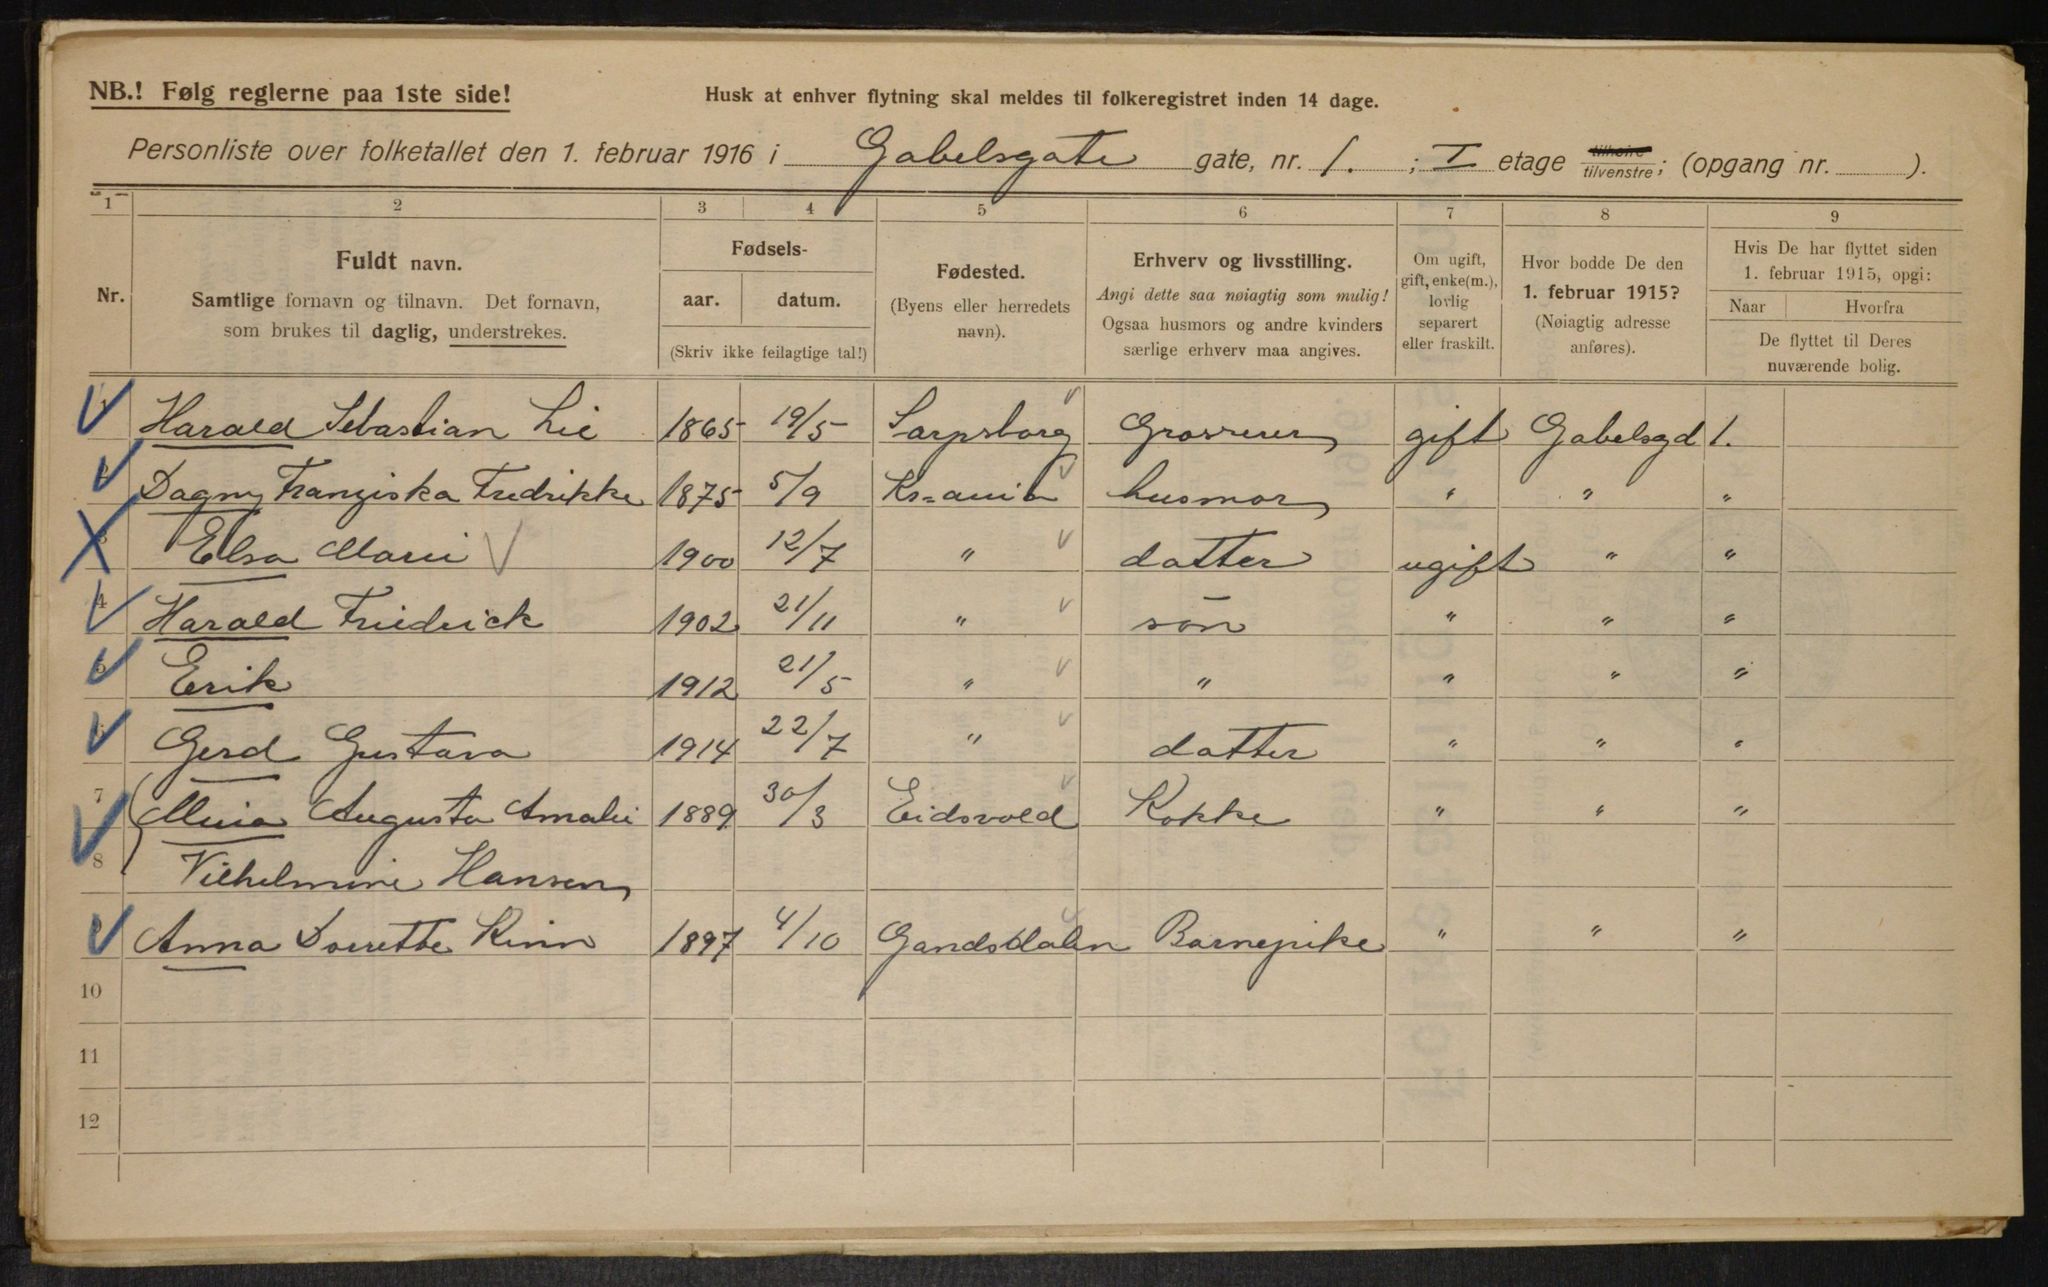 NB.! Følg reglerne paa 1ste side!
Husk at enhver flytning skal meldes til folkeregistret inden 14 dage.
Personliste over folketallet den 1. februar 1916 i Gabelsgate gate, nr. 1. ; I etage tilhøire tilvenstre; (opgang nr. ).
1 2 3 4 5 6 7 8 9
Nr.
Fuldt navn.
Samtlige fornavn og tilnavn. Det fornavn,
som brukes til daglig, understrekes.
Fødsels-
aar. datum.
(Skriv ikke feilagtige tal!)
Fødested.
(Byens eller herredets
navn).
Erhverv og livsstilling.
Angi dette saa nøiagtig som mulig!
Ogsaa husmors og andre kvinders
særlige erhverv maa angives.
Om ugift,
gift, enke(m.),
lovlig
separert
eller fraskilt.
Hvor bodde De den
1. februar 1915?
(Nøiagtig adresse
anføres).
Hvis De har flyttet siden
1. februar 1915, opgi:
Naar Hvorfra
De flyttet til Deres
nuværende bolig.
Harald Sebastian Lie 1865 19/5 Sarpsborg Grosserer gift Gabelsgd 1.
Dagny Franziska Fredrikke 1875 5/9 Kr=ania husmor " " "
3 Elsa Marie 1900 12/7 " datter ugift " "
4 Harald Friedrick 1902 21/11 " søn " " "
5 Erik 1912 21/5 " " " " "
6 Gerd Gustava 1914 22/7 " datter " " "
7 Augusta Amalie 1889 30/3 Eidsvold Kokke " " "
8 Vilhelmine Hansen
Anna Dorrethe Kinn 1897 4/10 Barnepike " " "
10
11
12